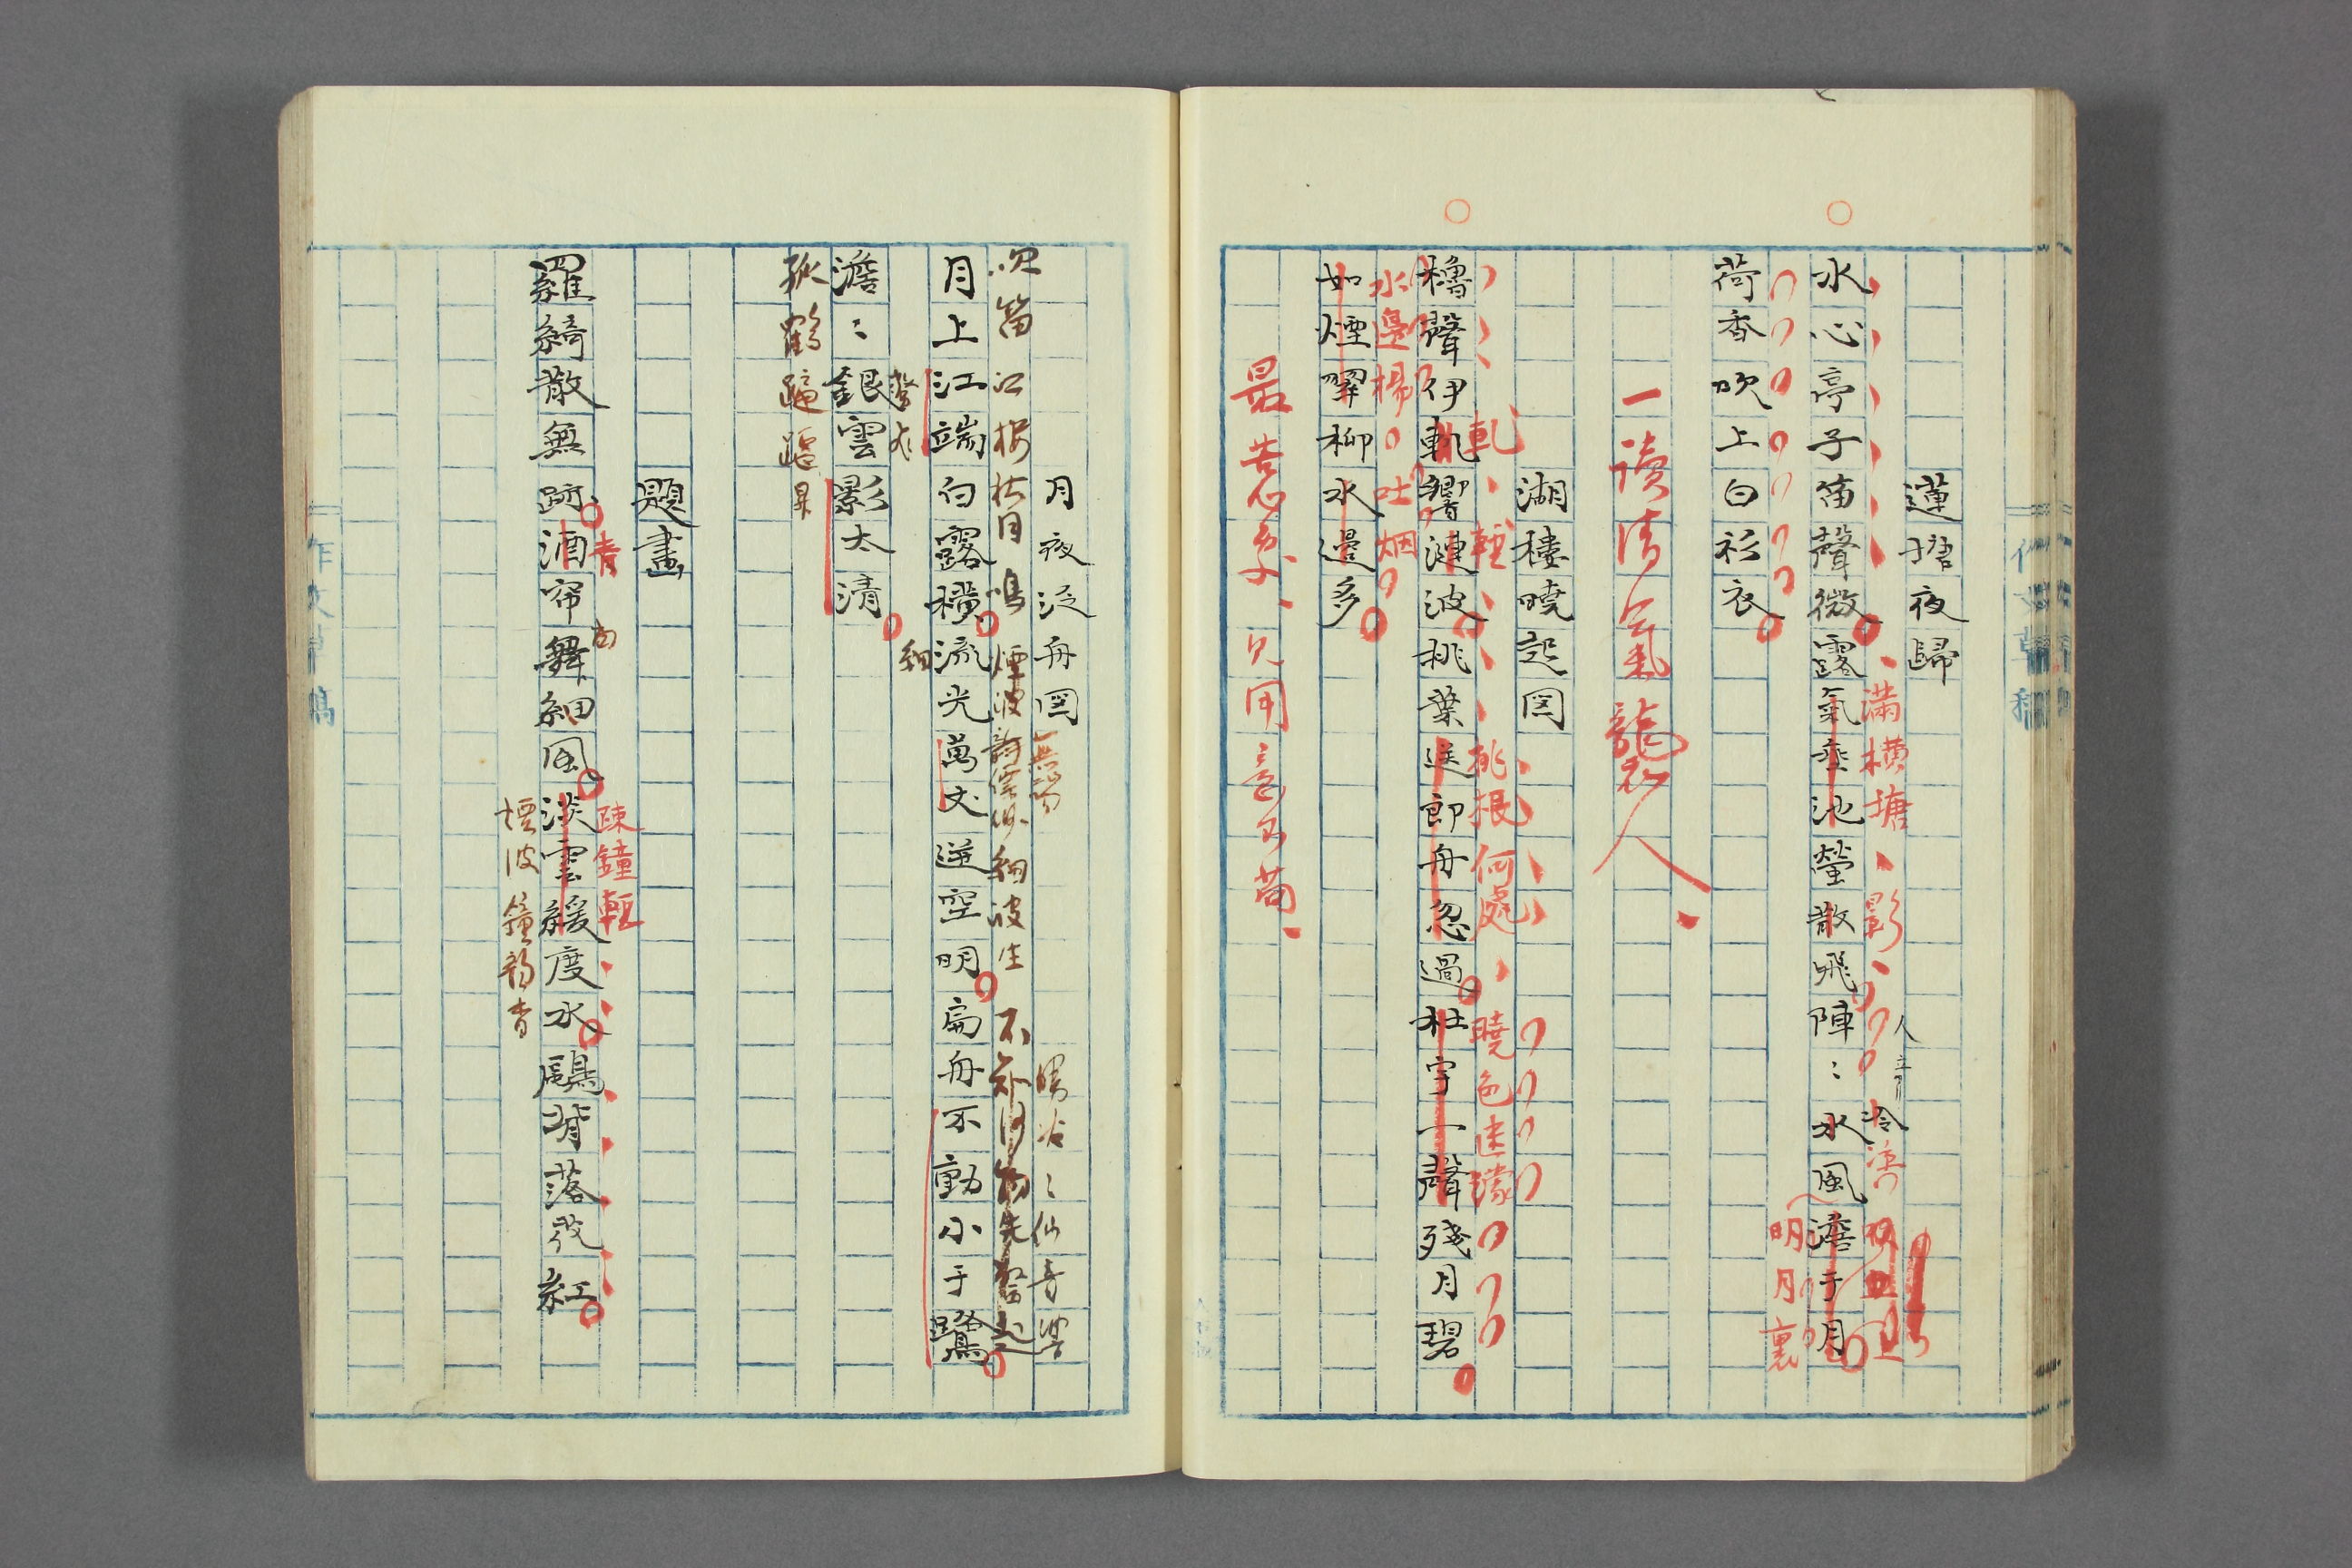 蓮塘夜歸
人音
滿橫塘影
冷
水心亭子笛聲微露氣垂池螢散飛陣〻水風澹于月
明月裏
荷香吹上白衫衣
一讀清氣襲人
湖樓曉起図
軋輕桃根何處曉色迷濛
櫓聲伊軋響漣波桃葉送郎舟忽過杜宇一聲殘月碧
水邊楊吐烟
如煙翠柳水邊多
最苦心多
月夜泛舟図
仙音響
吹笛江楼
煙波
細波生
不知何物先驚起
月上江端白露橫流光萬丈逆空明扁舟不動小于鷺
細
澹〻銀雲影太清
孤鶴
題畫
青
疎鐘輕
羅綺散無跡酒帘舞細風淡雲緩度水鷗背落残紅
煙波鐘韵杳
作文草稿